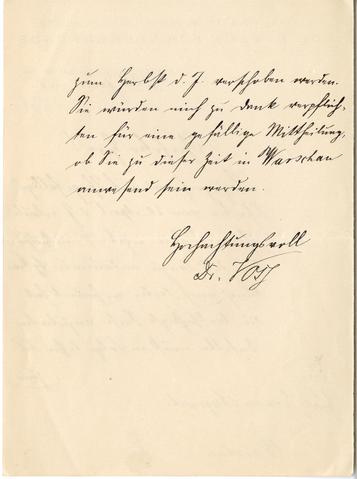 zum Herbst d. J. verschoben werden.
Sie würden mich zu Dank verpflich-
ten für eine gefällige Mittheilung,
ob Sie zu dieser Zeit in Warschau
anwesend sein werden.
Hochachtungsvoll
Dr. Voß